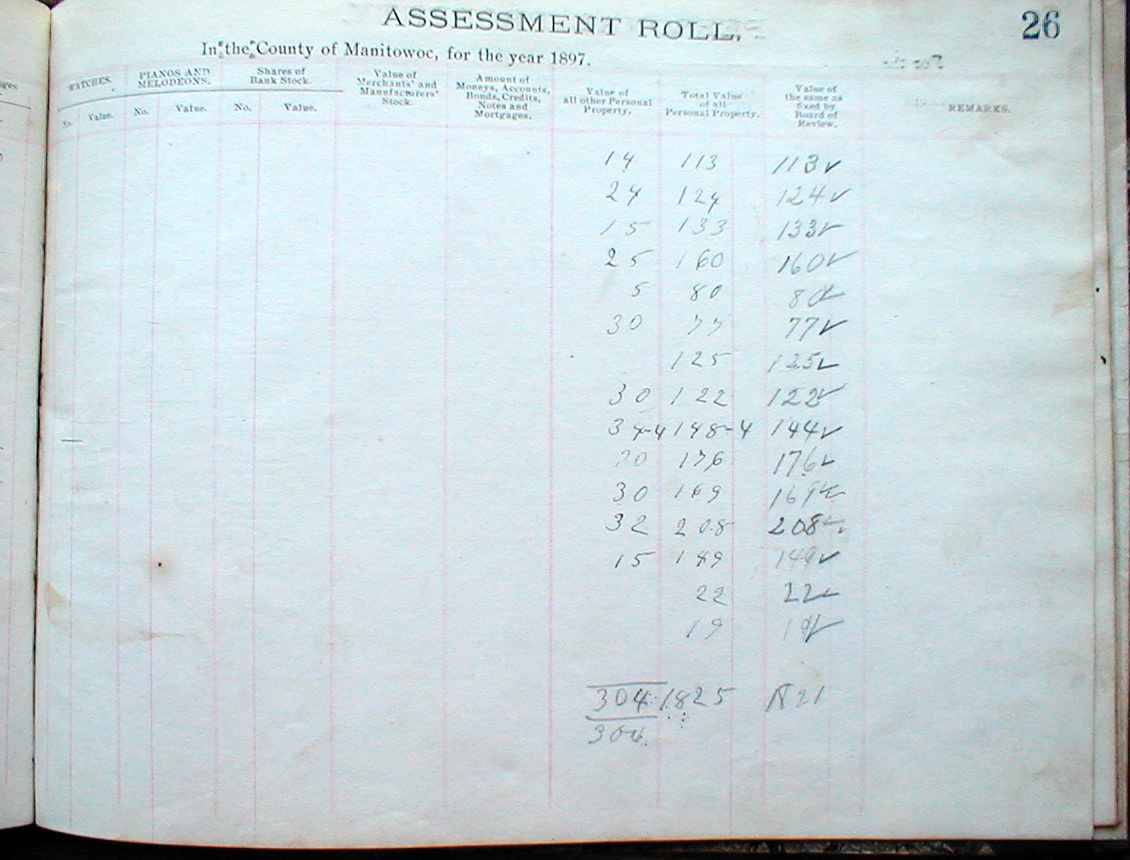 ASSESSMENT ROLL,
26
In the County of Manitowoc, for the year 1897.
WATCHES.
PIANOS AND MELODEONS.
Shares of Bank Stock.
Value of Merchants' and Manufacturers' Stock.
Amount of Moneys, Accounts, Bonds, Credits, Notes and Mortgages.
Value of all other Personal Property.
Total Value of all Personal Property.
Value of the same as fixed by Board of Review.
REMARKS.
No. Value. No. Value. No. Value.
14 113 113 ✓
24 124 124 ✓
15 133 133 ✓
25 160 160 ✓
5 80 80 ✓
30 77 77 ✓
125 125 ✓
30 122 122 ✓
34-4 148-4 144 ✓
20 176 176 ✓
30 169 169 ✓
32 208 208 ✓
15 149 149 ✓
22 22 ✓
19 19 ✓
304 1825 1821
304